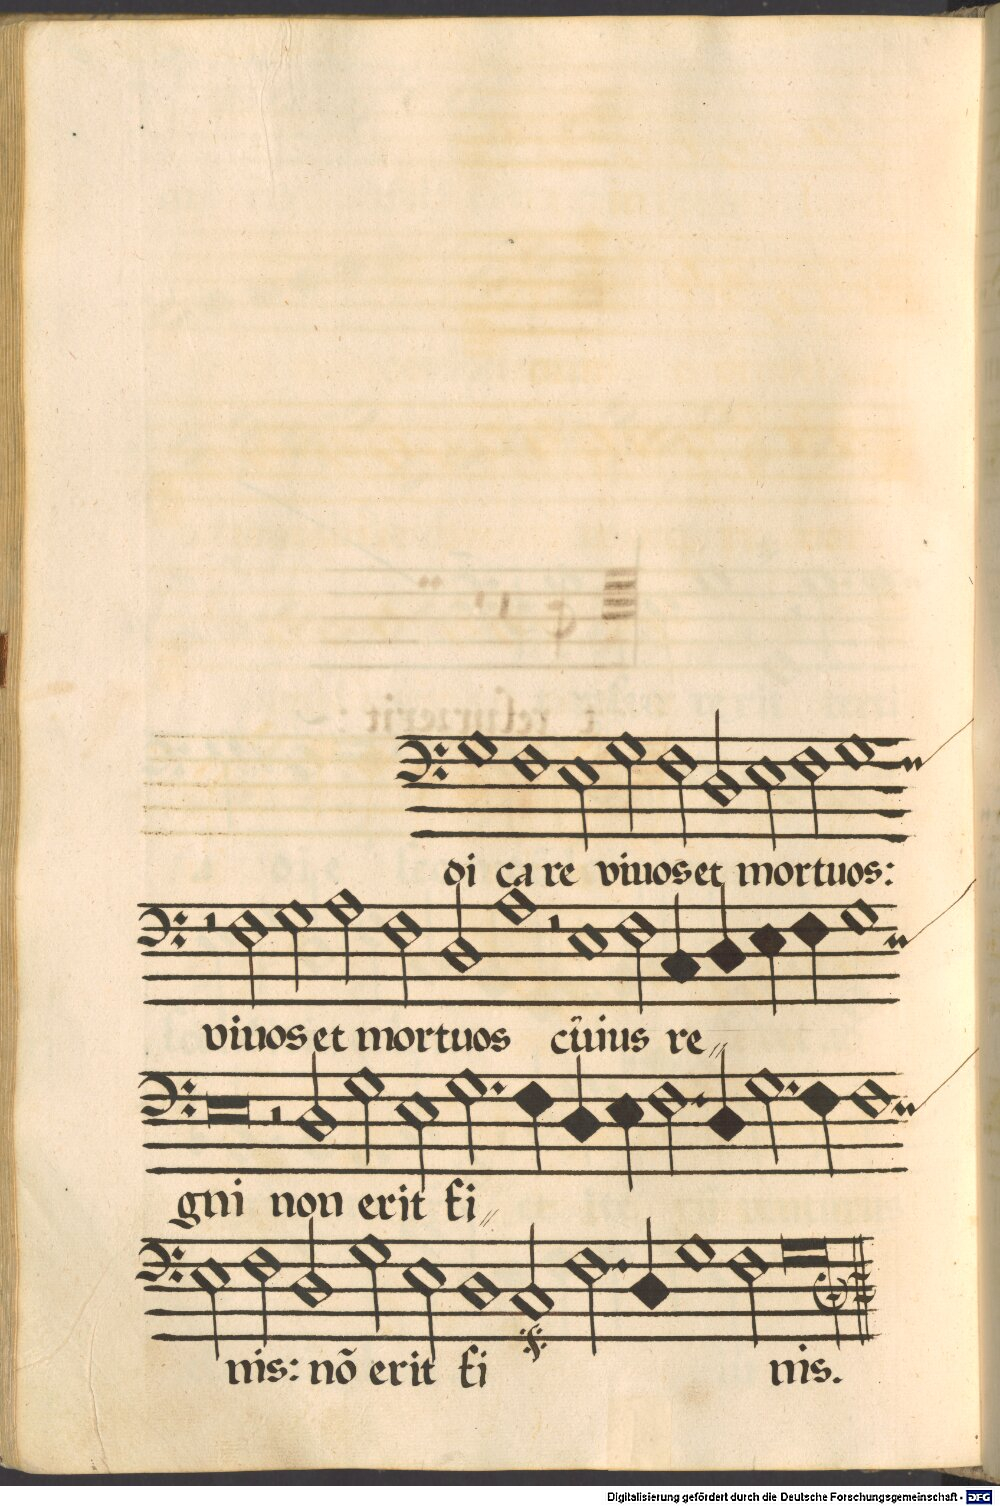 di ca re viuos et mortuos:
viuos et mortuos cũius re〃
gni non erit fi〃
nis: nõ erit fi nis.
Digitalisierung gefördert durch die Deutsche Forschungsgemeinschaft - DFG